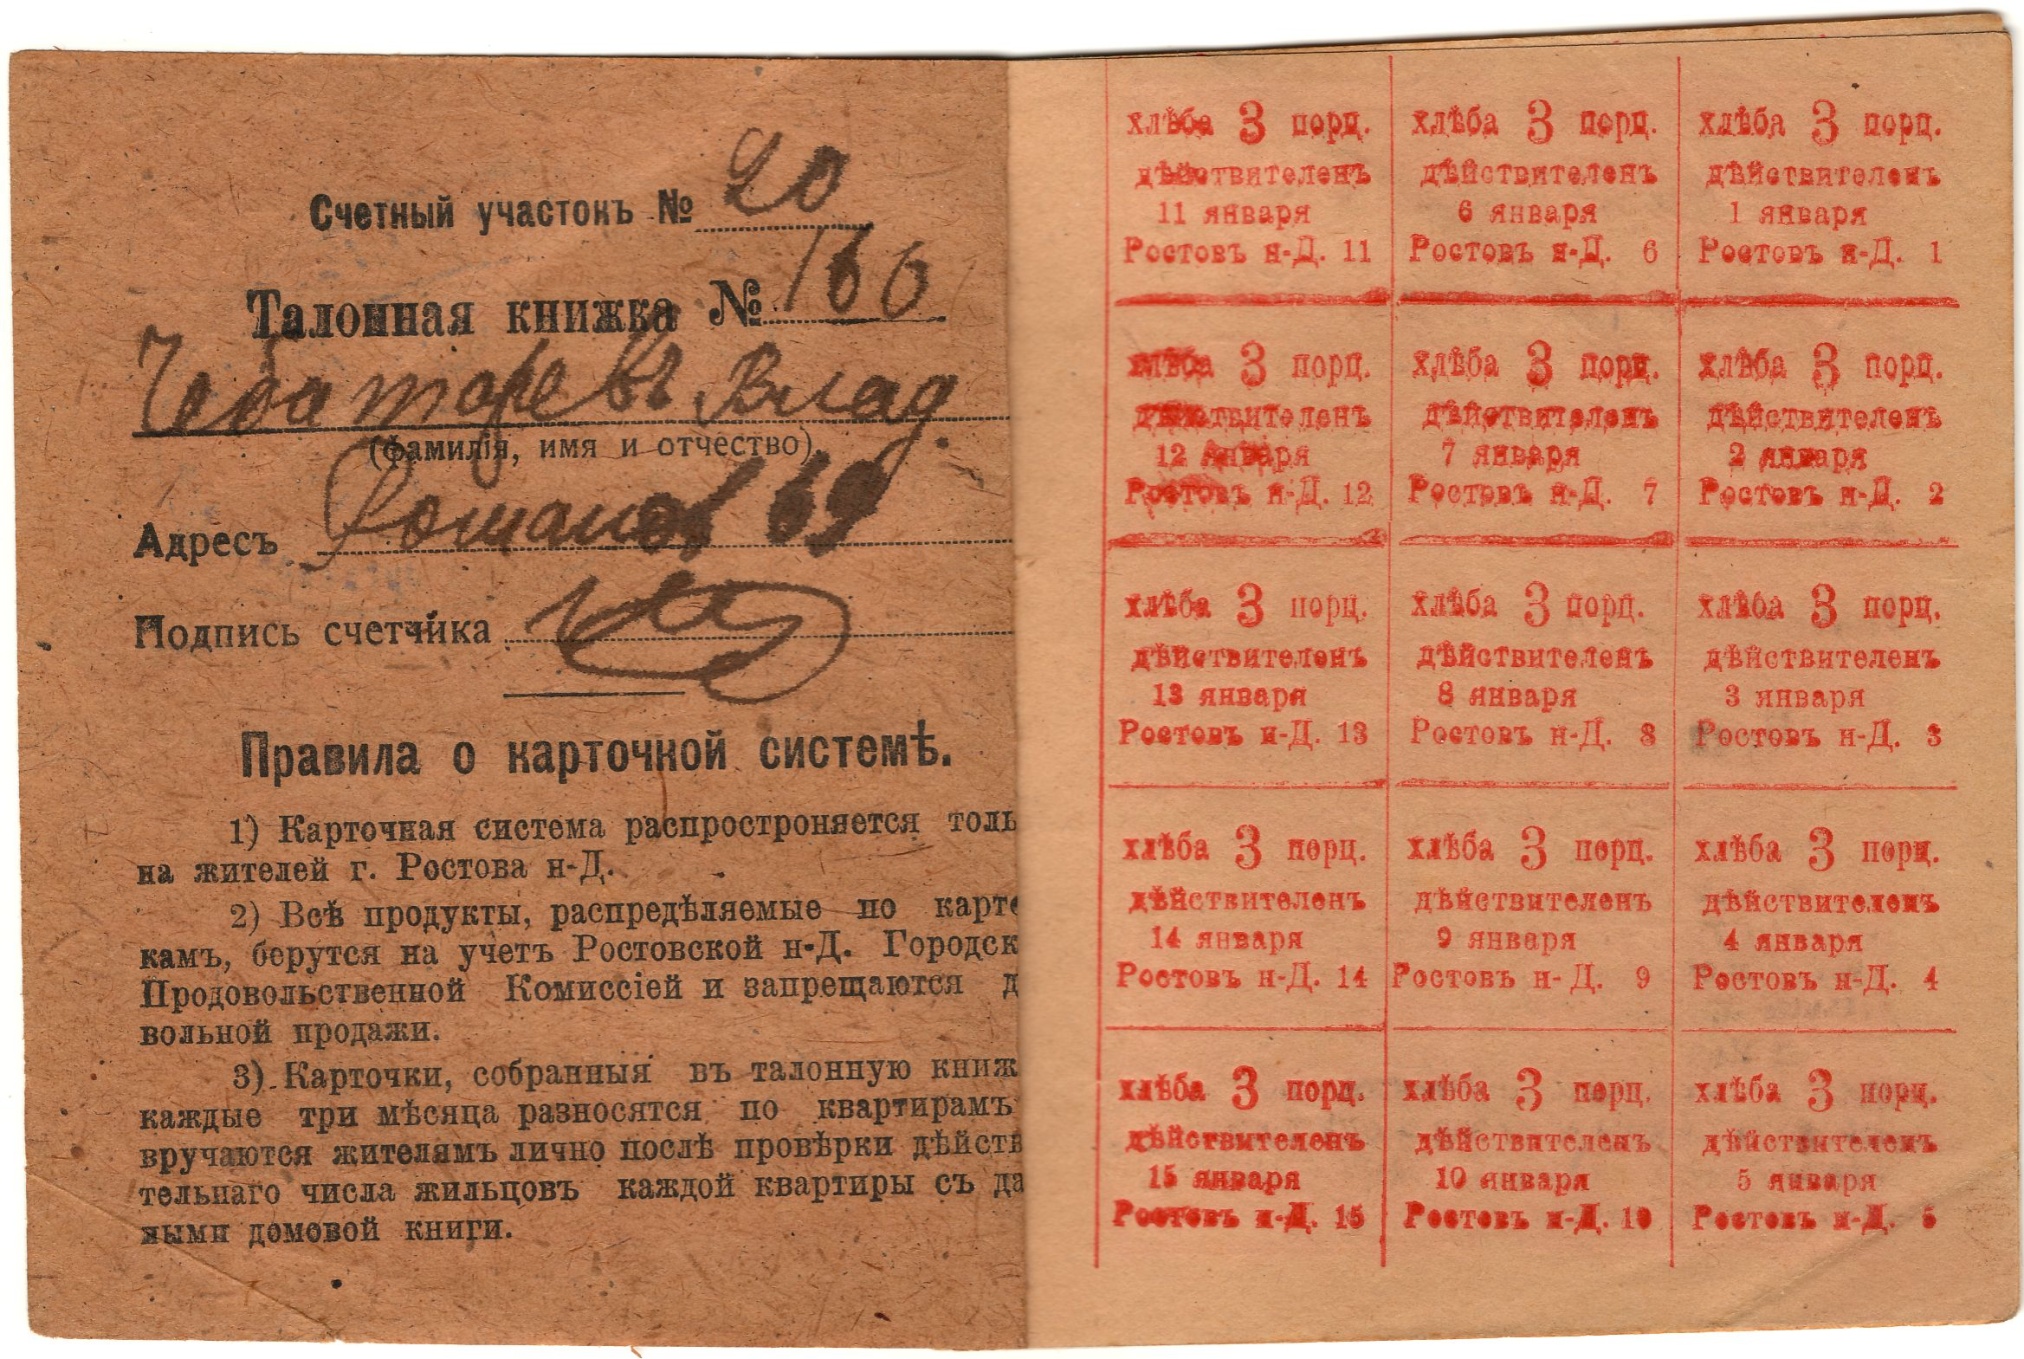 Счетный участокъ № 20
Талонная книжка № 166
Чеботаревъ Влад.
(фамилія, имя и отчество)
Адресъ Романов 69
Подпись счетчика
Правила о карточной системѣ.
1) Карточная система распростроняется толь
на жителей г. Ростова н-Д.
2) Всѣ продукты, распредѣляемые по карто
камъ, берутся на учетъ Ростовской н-Д. Городск
Продовольственной Комиссіей и запрещаются д
вольной продажи.
3) Карточки, собранныя въ талонную книж
каждые три мѣсяца разносятся по квартирамъ
вручаются жителямъ лично послѣ провѣрки дѣйств
тельнаго числа жильцовъ каждой квартиры съ да
ными домовой книги.
хлѣба 3 порц. хлѣба 3 порц. хлѣба 3 порц.
дѣйствителенъ дѣйствителенъ дѣйствителенъ
11 января 6 января 1 января
Ростовъ н-Д. 11 Ростовъ н-Д. 6 Ростовъ н-Д. 1
хлѣба 3 порц. хлѣба 3 порц. хлѣба 3 порц.
дѣйствителенъ дѣйствителенъ дѣйствителенъ
12 января 7 января 2 января
Ростовъ н-Д. 12 Ростовъ н-Д. 7 Ростовъ н-Д. 2
хлѣба 3 порц. хлѣба 3 порц. хлѣба 3 порц.
дѣйствителенъ дѣйствителенъ дѣйствителенъ
13 января 8 января 3 января
Ростовъ н-Д. 13 Ростовъ н-Д. 8 Ростовъ н-Д. 3
хлѣба 3 порц. хлѣба 3 порц. хлѣба 3 порц.
дѣйствителенъ дѣйствителенъ дѣйствителенъ
14 января 9 января 4 января
Ростовъ н-Д. 14 Ростовъ н-Д. 9 Ростовъ н-Д. 4
хлѣба 3 порц. хлѣба 3 порц. хлѣба 3 порц.
дѣйствителенъ дѣйствителенъ дѣйствителенъ
15 января 10 января 5 января
Ростовъ н-Д. 15 Ростовъ н-Д. 10 Ростовъ н-Д. 5